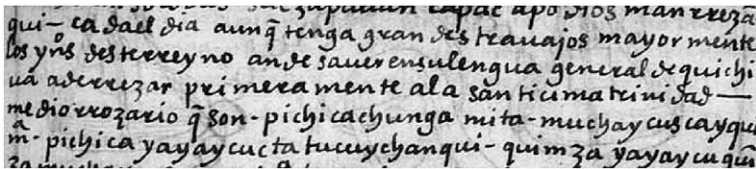 capac apo Dios man rreza
qui - cada el dia aunq̃ tenga grandes trauajos mayor mente
los yn̄os deste rreyno an de sauer en su lengua general de quichi
ua a de rrezar primera mente a la santicima trinidad —
medio rrozario q̃ son - pichica chunga mita - muchaycuscayqui
m̃ - pichica yayaycucta tucuychanqui - quimza yayaycu